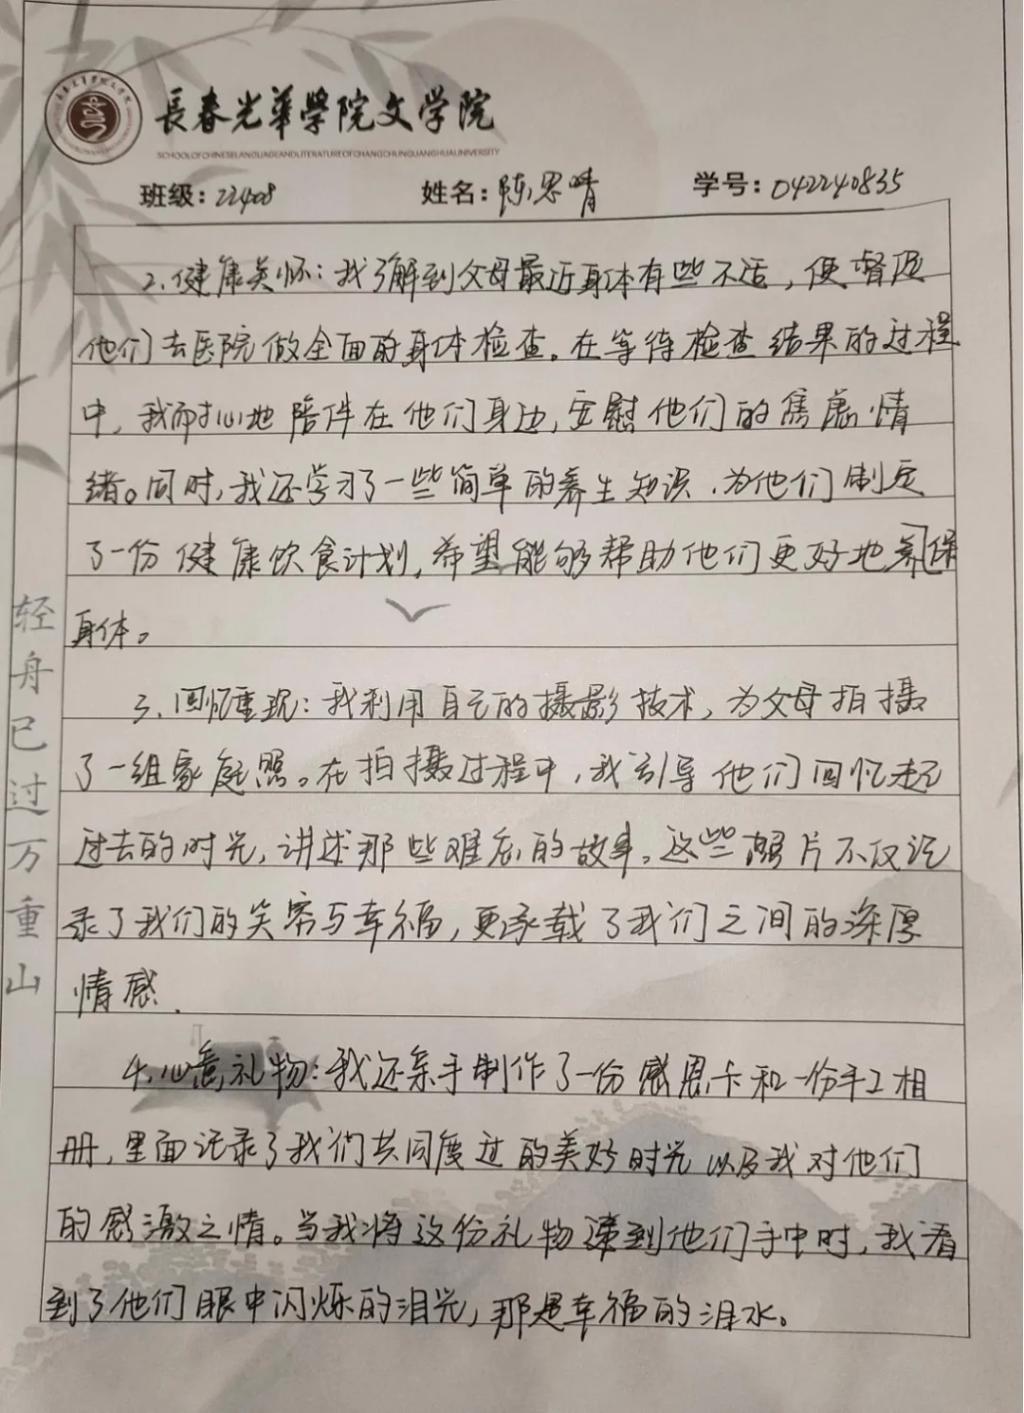 長春光華學院文学院
SCHOOL OF CHINESE LANGUAGE AND LITERATURE OF CHANGCHUN GUANGHUA UNIVERSITY
班级：22408 姓名：陈思晴 学号：042240835
2.健康关怀：我了解到父母最近身体有些不适，便督促
他们去医院做全面的身体检查。在等待检查结果的过程
中，我耐心地陪伴在他们身边，安慰他们的焦虑情
绪。同时，我还学习了一些简单的养生知识，为他们制定
了一份健康饮食计划，希望能够帮助他们更好地保
身体。
3.回忆重现：我利用自己的摄影技术，为父母拍摄
了一组家庭照。在拍摄过程中，我引导他们回忆起
过去的时光，讲述那些难忘的故事。这些照片不仅记
录了我们的笑容与幸福，更承载了我们之间的深厚
情感.
4.心意礼物：我还亲手制作了一份感恩卡和一份手工相
册，里面记录了我们共同度过的美好时光以及我对他们
的感激之情。当我将这份礼物递到他们手中时，我看
到了他们眼中闪烁的泪光，那是幸福的泪水。
轻舟已过万重山